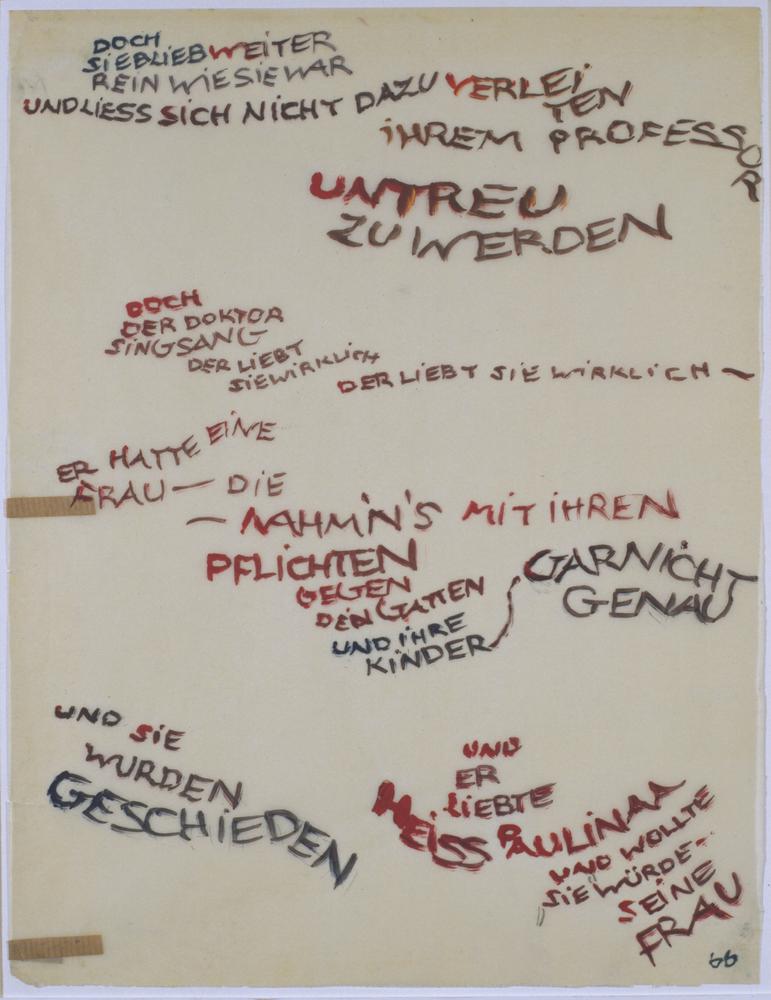 DOCH
SIE BLIEB WEITER
REIN WIE SIE WAR
UND LIESS SICH NICHT DAZU VERLEI
TEN
IHREM PROFESSOR
UNTREU
ZU WERDEN
DOCH
DER DOKTOR
SINGSANG
DER LIEBT
SIE WIRKLICH
DER LIEBT SIE WIRKLICH —
ER HATTE EINE
FRAU — DIE
— NAHM'N'S MIT IHREN
PFLICHTEN
GEGEN
DEN GATTEN
UND IHRE
KINDER
GARNICHT
GENAU
UND SIE
WURDEN
GESCHIEDEN
UND
ER
LIEBTE
HEISS PAULINAA
UND WOLLTE
SIE WÜRDE -
SEINE
FRAU
66